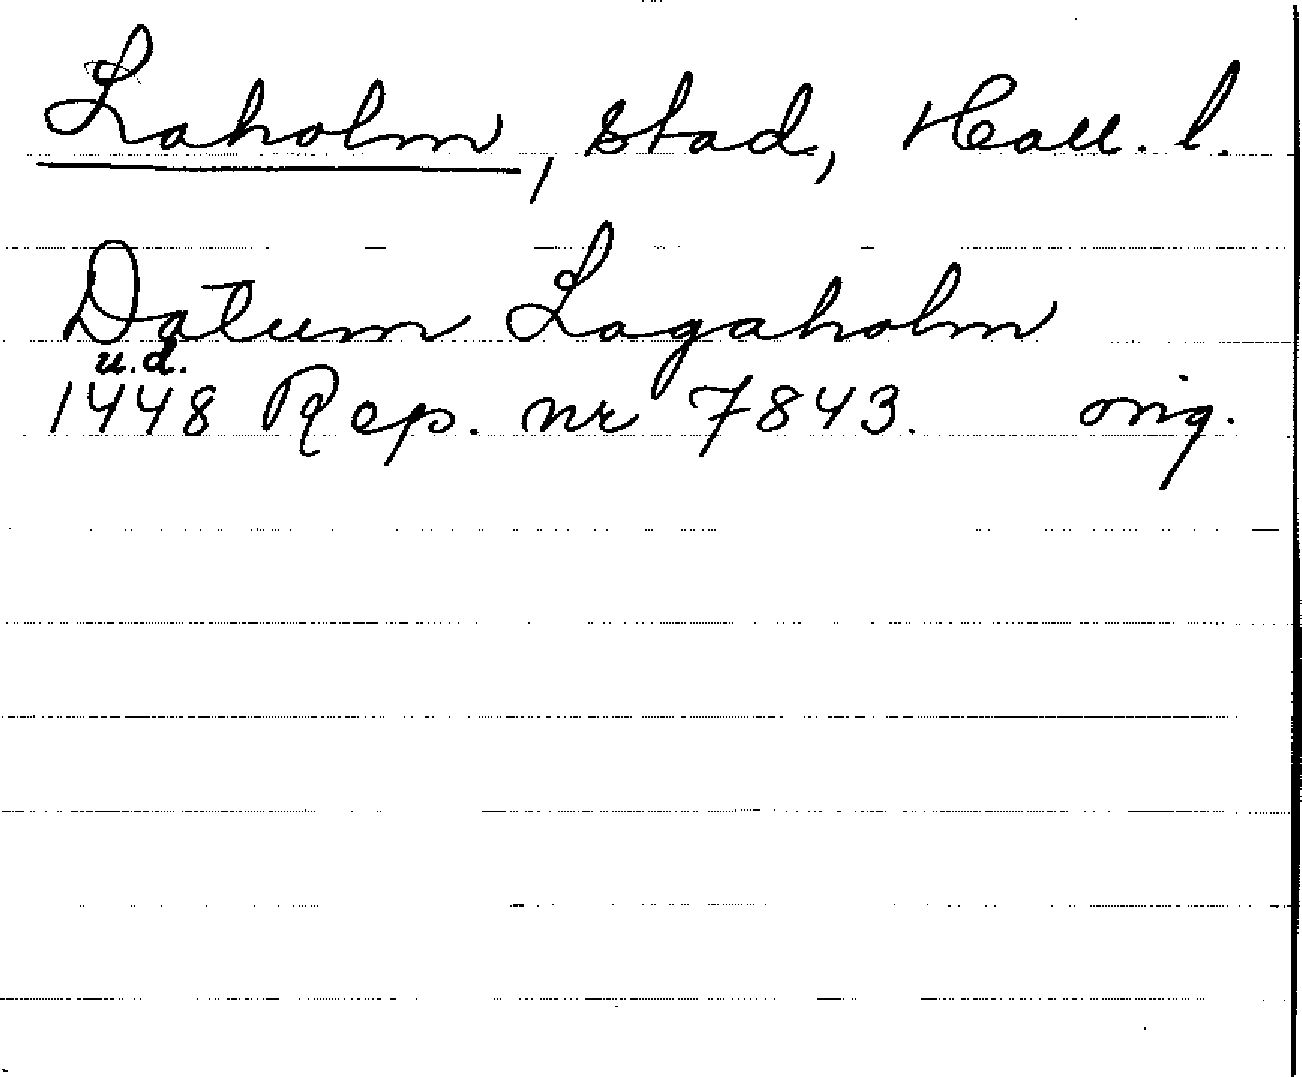 Laholm, stad, Hall. l.
Datum Lagaholm
u.d.
1448 Rep. nr 7843. orig.